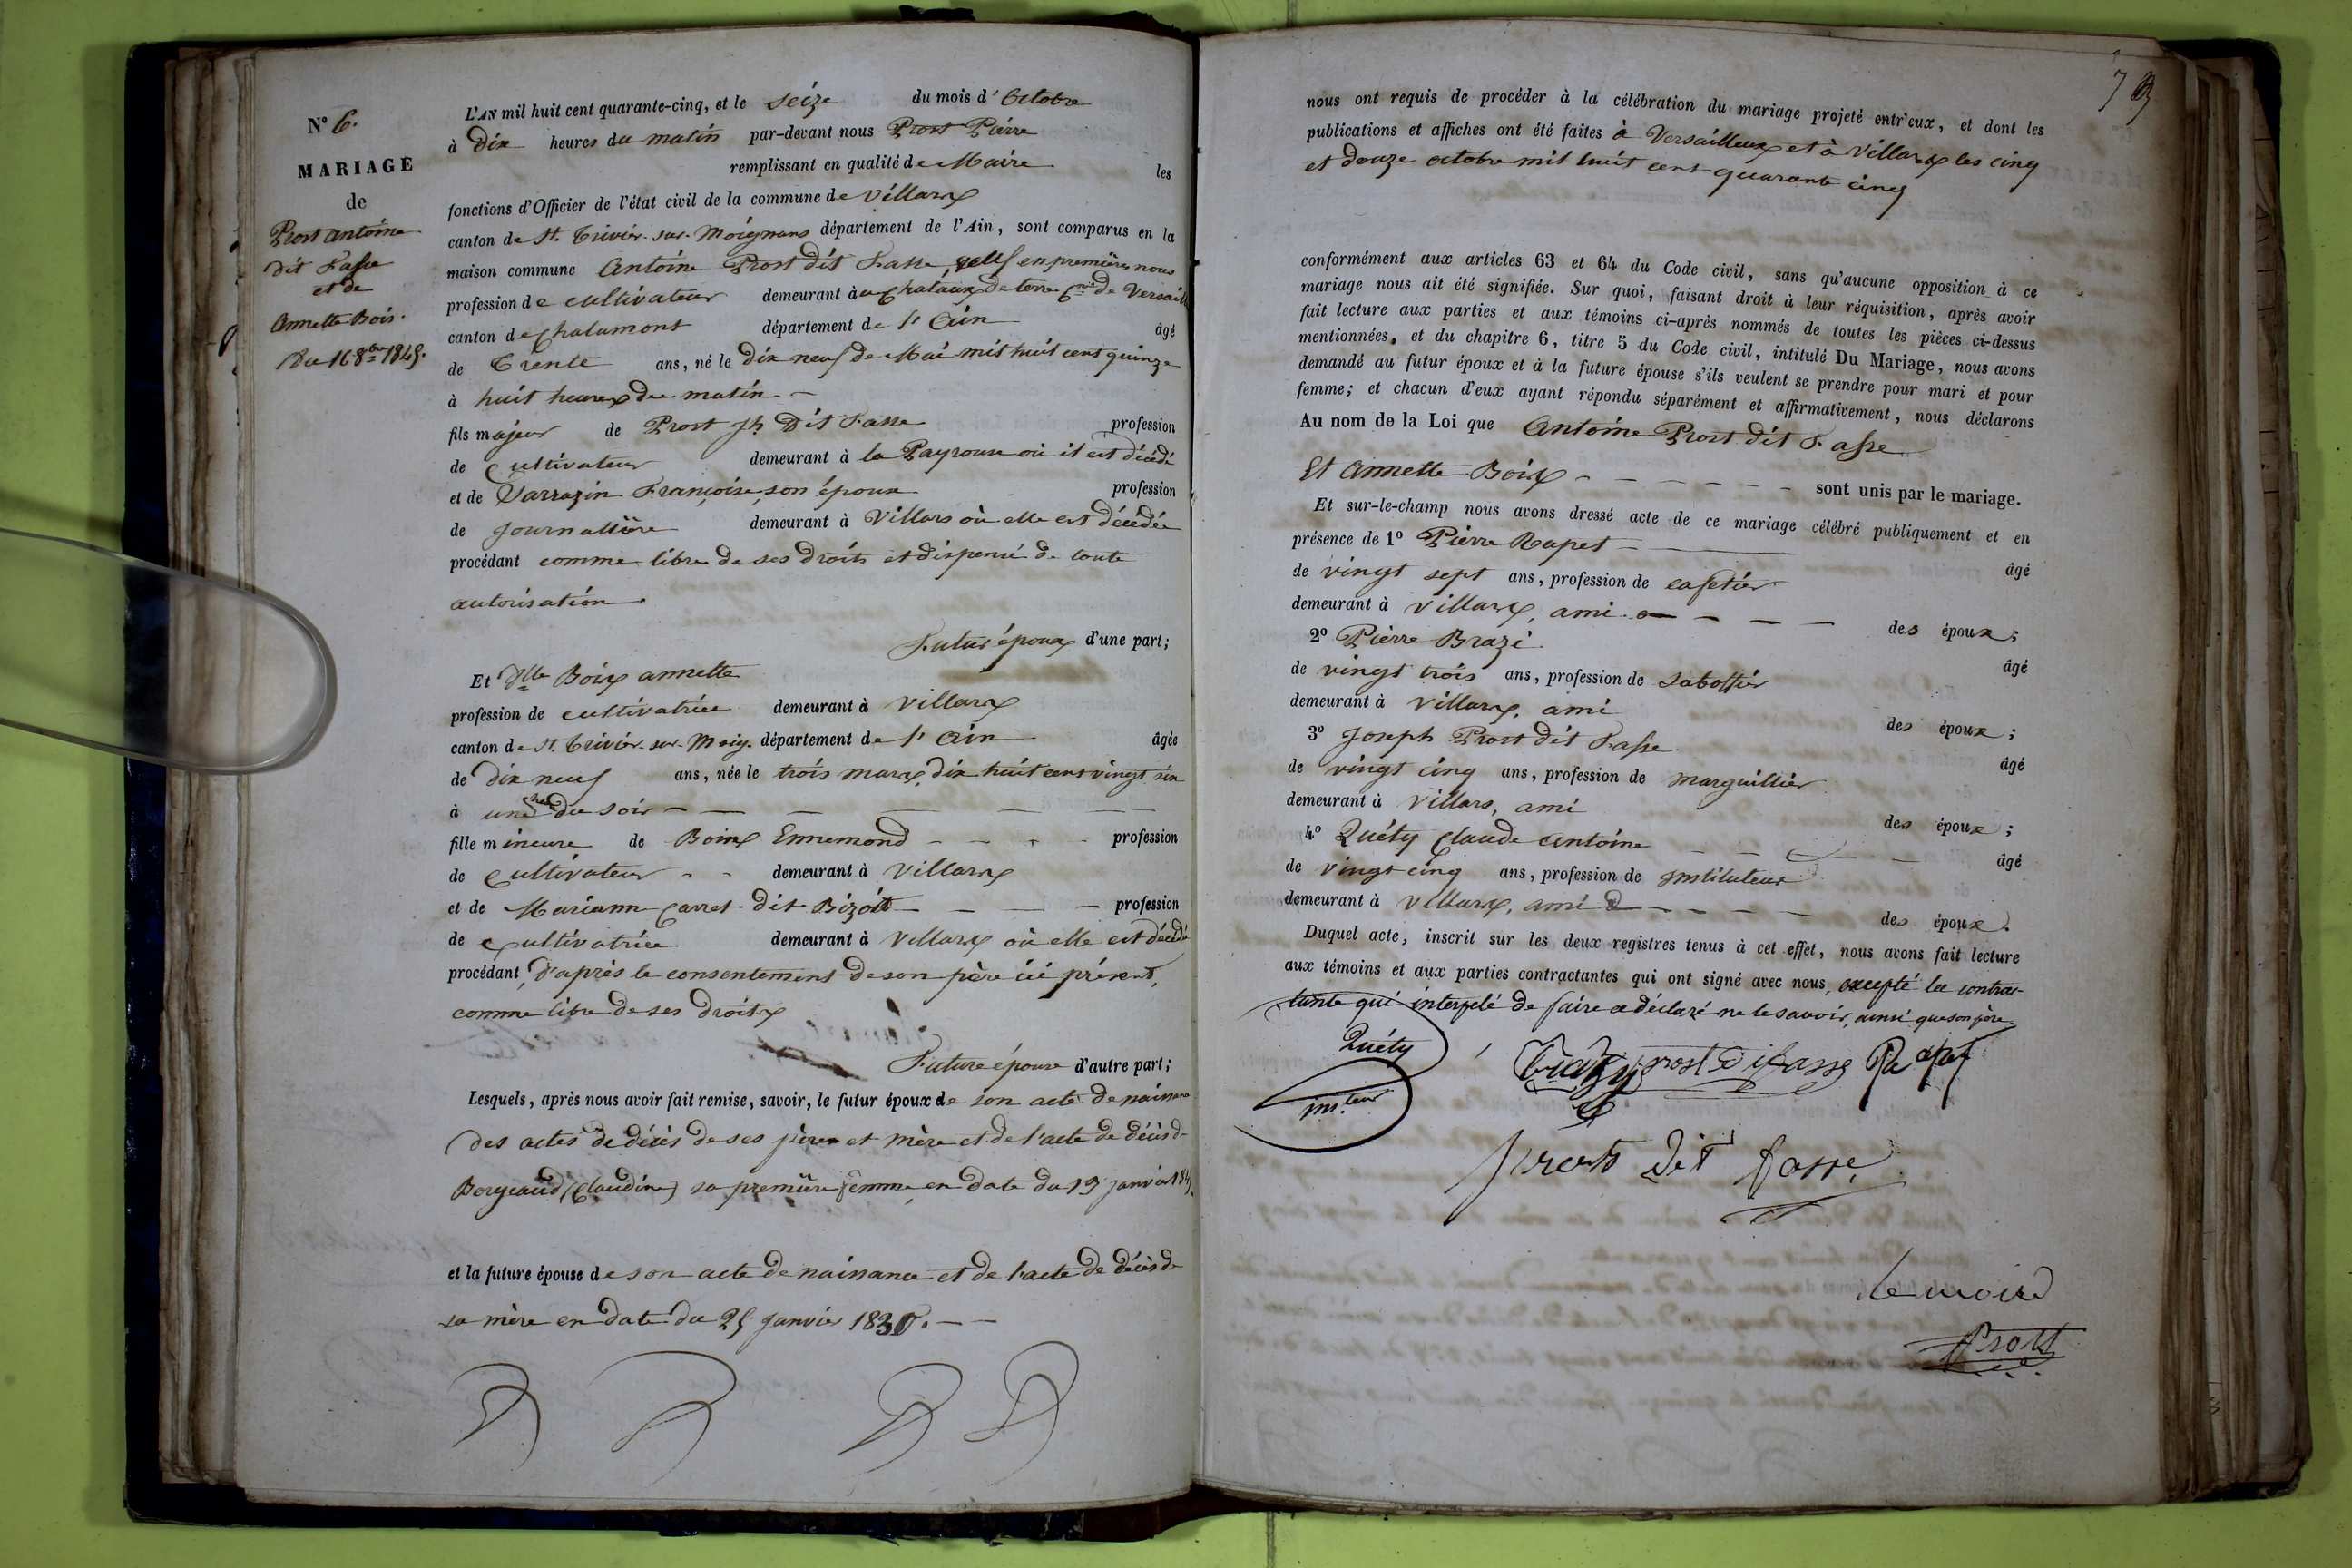 N° 6.
MARIAGE
de
Prost antoine
dit Fasse
et de
Annette Bois.
Du 16 8bre 1845.
L'AN mil huit cent quarante-cinq, et le seize du mois d'Octobre
à Dix heures du matin par-devant nous Prost Pierre
remplissant en qualité de Maire les
fonctions d'Officier de l'état civil de la commune de Villars
canton de St. Trivier-sur-Moignans département de l'Ain, sont comparus en la
maison commune Antoine Prost dit Fasse, veuf en premières noces
profession de cultivateur demeurant à Chataux de terre Cne de Versaill
canton de Chalamont département de l'Ain âgé
de Trente ans, né le dix neuf de Mai mil huit cent quinze
à huit heures du matin
fils majeur de Prost Jh Dit Fasse profession
de Cultivateur demeurant à la Payrouse où il est décédé
et de Varrazin Françoise, son épouse profession
de Journalière demeurant à Villars où elle est décédée
procédant comme libre de ses droits et dispensé de toute
autorisation.
Futur époux d'une part;
Et Dlle Boix annette
profession de cultivatrice demeurant à Villars
canton de St. Trivier-sur-Moig. département de l'Ain âgée
de dix neuf ans, née le trois mars, dix huit cent vingt six
à une hre du soir
fille mineure de Boix Ennemond profession
de Cultivateur demeurant à Villars
et de Mariann Carret dit Bizoit profession
de Cultivatrice demeurant à Villars où elle est décédé
procédant, d'après le consentement de son père ici présent,
comme libre de ses droits
Future épouse d'autre part;
Lesquels, après nous avoir fait remise, savoir, le futur époux de son acte de naissance
des actes de décès de ses père et mère et de l'acte de décès de
Borgeaud (Claudine) sa première femme, en date du 19 janvier 184
et la future épouse de son acte de naissance et de l'acte de décès de
sa mère en date du 25 janvier 1830.
nous ont requis de procéder à la célébration du mariage projeté entr'eux, et dont les
publications et affiches ont été faites à Versailleux et à Villars les cinq
et douze octobre mil huit cent quarante cinq
conformément aux articles 63 et 64 du Code civil, sans qu'aucune opposition à ce
mariage nous ait été signifiée. Sur quoi, faisant droit à leur réquisition, après avoir
fait lecture aux parties et aux témoins ci-après nommés de toutes les pièces ci-dessus
mentionnées, et du chapitre 6, titre 5 du Code civil, intitulé Du Mariage, nous avons
demandé au futur époux et à la future épouse s'ils veulent se prendre pour mari et pour
femme; et chacun d'eux ayant répondu séparément et affirmativement, nous déclarons
Au nom de la Loi que Antoine Prost dit Fasse
Et Annette Boix sont unis par le mariage.
Et sur-le-champ nous avons dressé acte de ce mariage célébré publiquement et en
présence de 1° Pierre Rapet âgé
de vingt sept ans, profession de cafetier
demeurant à Villars, ami des époux;
2° Pierre Brazi âgé
de vingt trois ans, profession de sabottier
demeurant à Villars, ami des époux;
3° Joseph Prost dit Fasse âgé
de vingt cinq ans, profession de marguillier
demeurant à Villars, ami des époux;
4° Quéty Claude Antoine âgé
de vingt cinq ans, profession de Instituteur
demeurant à Villars, ami des époux.
Duquel acte, inscrit sur les deux registres tenus à cet effet, nous avons fait lecture
aux témoins et aux parties contractantes qui ont signé avec nous, excepté la contrac-
tante qui interpelé de faire a déclaré ne le savoir, ainsi que son père
Quéty
ins.teur
Brazy prost difasse Rapet
prost Dit fasse
le maire
Prost